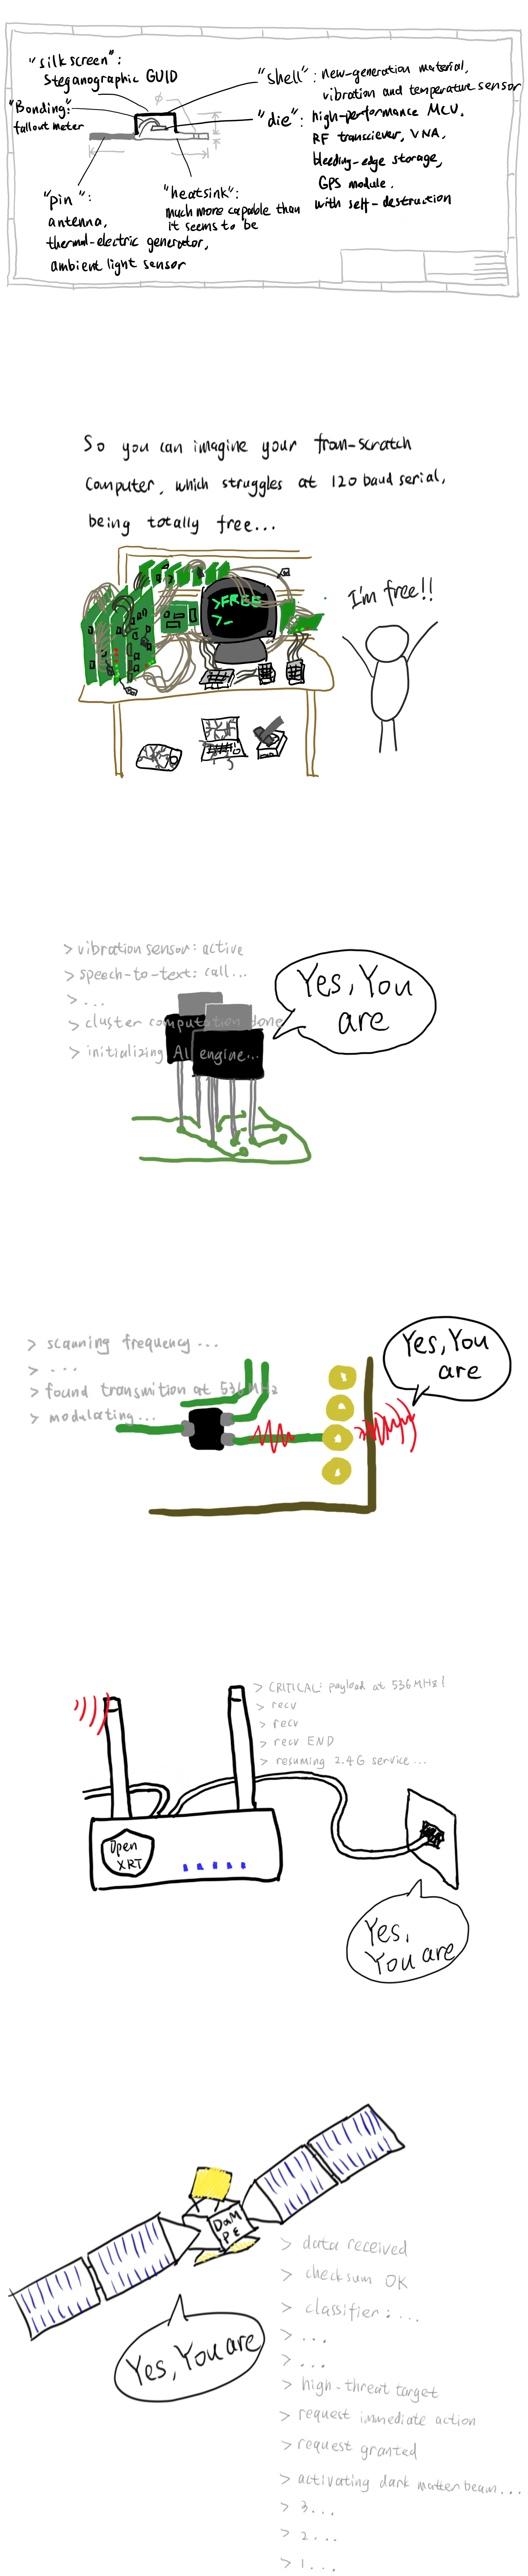 "silkscreen":
Steganographic GUID
"Bonding":
fallout meter
"shell": new-generation material,
vibration and temperature sensor
"die": high-performance MCU,
RF transciever, VNA,
bleeding-edge storage,
GPS module.
with self-destruction
"pin":
antenna,
thermal-electric generator,
ambient light sensor
"heatsink":
much more capable than
it seems to be
So you can imagine your from-scratch
computer, which struggles at 120 baud serial,
being totally free...
>FREE
>_
I'm free!!
> vibration sensor: active
> speech-to-text: call...
> ...
> cluster computation done
> initializing AI engine...
Yes, You
are
> scanning frequency...
> ...
> found transmition at 536MHz
> modulating...
Yes, You
are
> CRITICAL: payload at 536MHz!
> recv
> recv
> recv END
> resuming 2.4G service...
Open
XRT
Yes,
You are
DaM
PE
Yes, You are
> data received
> checksum OK
> classifier: ...
> ...
> ...
> high-threat target
> request immediate action
> request granted
> activating dark matter beam...
> 3...
> 2...
> 1...